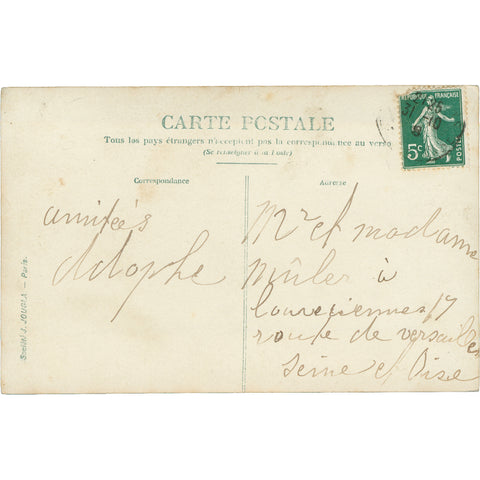 CARTE POSTALE
Tous les pays étrangers n'acceptent pas la correspondance au verso
(Se renseigner à la Poste)
Correspondance
Adresse
RÉPUBLIQUE FRANÇAISE
5c
POSTES
amitiés
Adolphe
Mr et madame
Müler à
Louveciennes 17
route de versailles
Seine et Oise
Société J. JOUGLA — Paris.